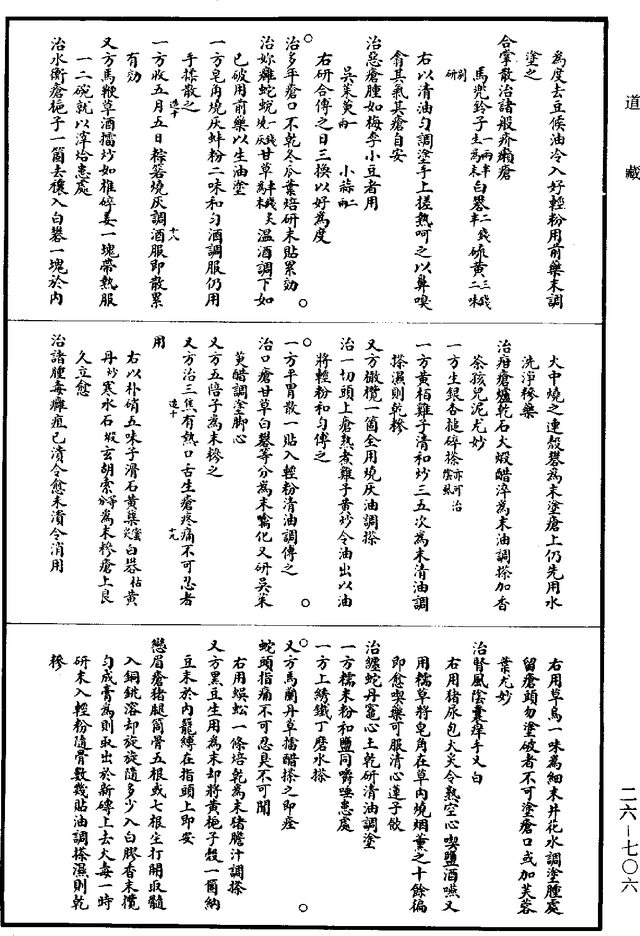 道藏
為度去豆候油冷入好輕粉用前藥末調
塗之
合掌散治諸般疥癩瘡
馬兜鈴子一兩半生為末白礬二錢半硫黃三錢二味
別研
右以清油勻調塗手上搓熱呵之以鼻嗅
翕其氣其瘡自安
治惡瘡腫如梅李小豆者用
吳茱萸一兩 小蒜二兩
右研合傅之日三換以好為度
治多年瘡口不乾冬瓜葉焙研末貼累効
治妳癰蛇蛻一錢燒灰甘草半錢為末炙溫酒調下如
已破用前藥以生油塗
一方皂角燒灰蚌粉二味和勻酒調服仍用
手揉散之 造十
一方收五月五日粽箬燒灰調酒服即散累
有効 十八
又方馬鞭草酒擂炒如椎碎姜一塊帶熱服
一二碗就以滓培患處
治水衡瘡梔子一箇去穰入白礬一塊於內
火中燒之連殼礬為末塗瘡上仍先用水
洗淨糝藥
治疳瘡爐乾石火煅醋淬為末油調搽加香
茶孩兒泥尤妙
一方生銀杏搥碎搽亦可治陰虱
一方黃栢雞子清和炒三五次為末清油調
搽濕則乾糝
又方橄欖一箇全用燒灰油調搽
治一切頭上瘡熟煮雞子黃炒令油出以油
將輕粉和勻傅之
一方平胃散一貼入輕粉清油調傅之
治口瘡甘草白礬等分為末噙化又研吳茱
萸醋調塗脚心
又方五倍子為末糝之
又方治三焦有熱口舌生瘡疼痛不可忍者 造十 十九
用
右以朴硝五味子滑石黃蘗蜜炙白礬枯黃
丹炒寒水石煅玄胡索等分為末糝瘡上良
久立愈
治諸腫毒癰疽已潰令愈未潰令消用
右用草烏一味為細末井花水調塗腫處
留瘡頭勿塗破者不可塗瘡口或加芙蓉
葉尤妙
治腎風陰囊痒手叉白
右用猪尿包火炙令熟空心喫鹽酒嚥又
用糯草將皂角在草內燒烟薰之十餘徧
即愈喫藥可服清心蓮子飲
治纏蛇丹竈心土乾研清油調塗
一方糯米粉和鹽同嚼唾患處
一方上綉鐵丁磨水搽
又方馬蘭丹草擂醋搽之即痊
蛇頭指痛不可忍臭不可聞
右用蜈蚣一條焙乾為末猪膽汁調搽
又方黑豆生用為末却將黃梔子殼一箇納
豆末於內籠縛在指頭上即安
戀眉瘡猪腿筒骨五根或七根全打開取髓
入銅銚溶却旋旋隨多少入白膠香末攪
勻成膏為則取出於新磚上去火毒一時
研末入輕粉隨骨數幾貼油調搽濕則乾
糝
二六—七〇六